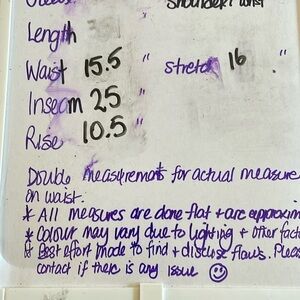 Shoulder/
Length
Waist 15.5 " stretch 16 "
Inseam 25 "
Rise 10.5 "
Double measurements for actual measure
on waist.
* All measures are done flat + are approxim
* Colour may vary due to lighting + other fact
* Best effort made to find + disclose flaws. Pleas
contact if there is any issue ☺